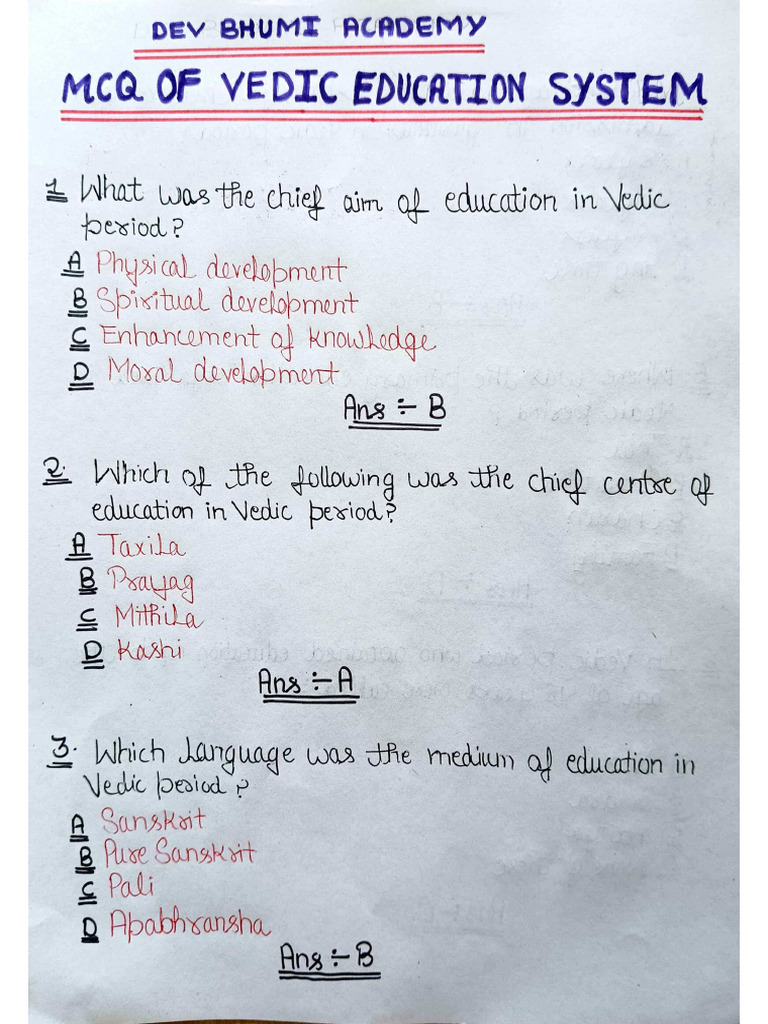 DEV BHUMI ACADEMY
MCQ OF VEDIC EDUCATION SYSTEM
1 What was the chief aim of education in Vedic
period?
A Physical development
B Spiritual development
C Enhancement of knowledge
D Moral development
Ans ÷ B
2. Which of the following was the chief centre of
education in Vedic period?
A Taxila
B Prayag
C Mithila
D Kashi
Ans ÷ A
3. Which language was the medium of education in
Vedic period?
A Sanskrit
B Pure Sanskrit
C Pali
D Apabhransha
Ans ÷ B